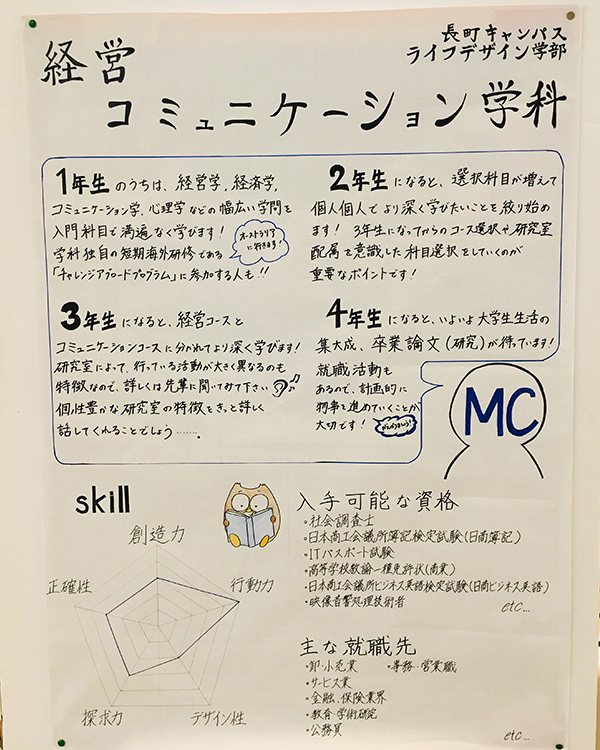 長町キャンパス
ライフデザイン学部
経営
コミュニケーション学科
1年生 のうちは、経営学,経済学,
コミュニケーション学,心理学 などの幅広い学問を
入門科目で満遍なく学びます！
学科独自の短期海外研修である
「チャレンジアブロードプログラム」に参加する人も!!
オーストラリア
に行きます！
2年生 になると、選択科目が増えて
個人個人でより深く学びたいことを絞り始め
ます！ 3年生になってからのコース選択や研究室
配属を意識した科目選択をしていくのが
重要なポイントです！
3年生 になると、経営コースと
コミュニケーションコースに分かれてより深く学びます！
研究室によって、行っている活動が大きく異なるのも
特徴なので、詳しくは先輩に聞いてみて下さい
個性豊かな研究室の特徴をきっと詳しく
話してくれることでしょう…….
4年生 になると、いよいよ大学生生活の
集大成、卒業論文(研究)が待っています！
就職活動も
あるので、計画的に
物事を進めていくことが
大切です！
がんばりましょう！
MC
skill
創造力
正確性
行動力
探求力
デザイン性
入手可能な資格
・社会調査士
・日本商工会議所簿記検定試験(日商簿記)
・ITパスポート試験
・高等学校教諭一種免許状(商業)
・日本商工会議所ビジネス英語検定試験(日商ビジネス英語)
・映像音響処理技術者
etc...
主な就職先
・卸・小売業 ・事務・営業職
・サービス業
・金融、保険業界
・教育・学術研究
・公務員
etc...